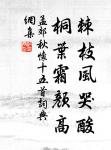 棘枝風哭酸
桐葉霜顏高
孟郊秋懷十五首詞典
網集